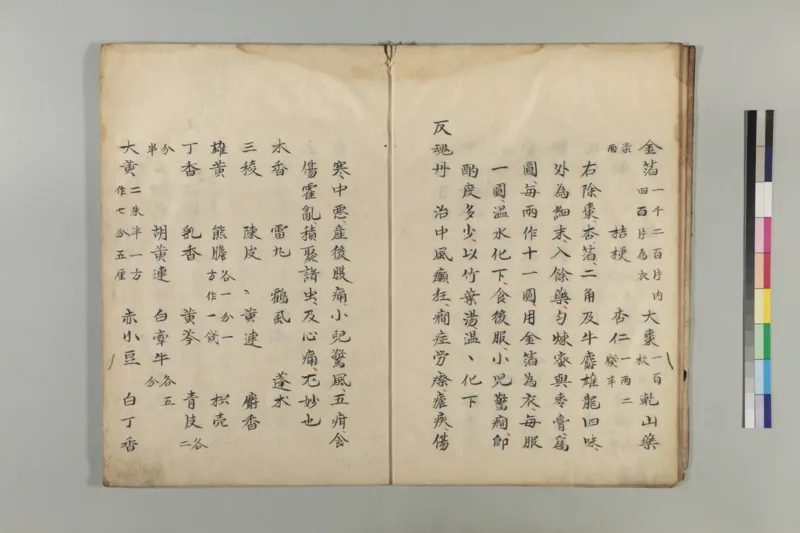 金箔一千二百片内四百片為衣 大棗一百枚 乾山藥
柒两 桔梗 杏仁一两二錢半
右除棗、杏、箔、二角及牛麝雄龍四味、
外為細末、入餘藥、匀煉蜜與棗膏為
圓、毎兩作十一圓、用金箔為衣、毎服
一圓、温水化下、食後服、小児驚癇、即
酌度多少、以竹葉湯、温〻化下
反魂丹 治中風癲狂、癇症労瘵、瘧疾、傷
寒、中悪、産後腹痛小児驚風、五疳、食
傷霍乱、積聚、諸虫、及心痛、尤妙也
木香 雷丸 鶴虱 蓬朮
三稜 陳皮 黄連 麝香
雄黄 熊膽各一分一方作一錢 黄芩 枳壳
丁香 乳香 青皮各二
分半 胡黄連 白牽牛各五分
大黄二朱半一方作七分五厘 赤小豆 白丁香